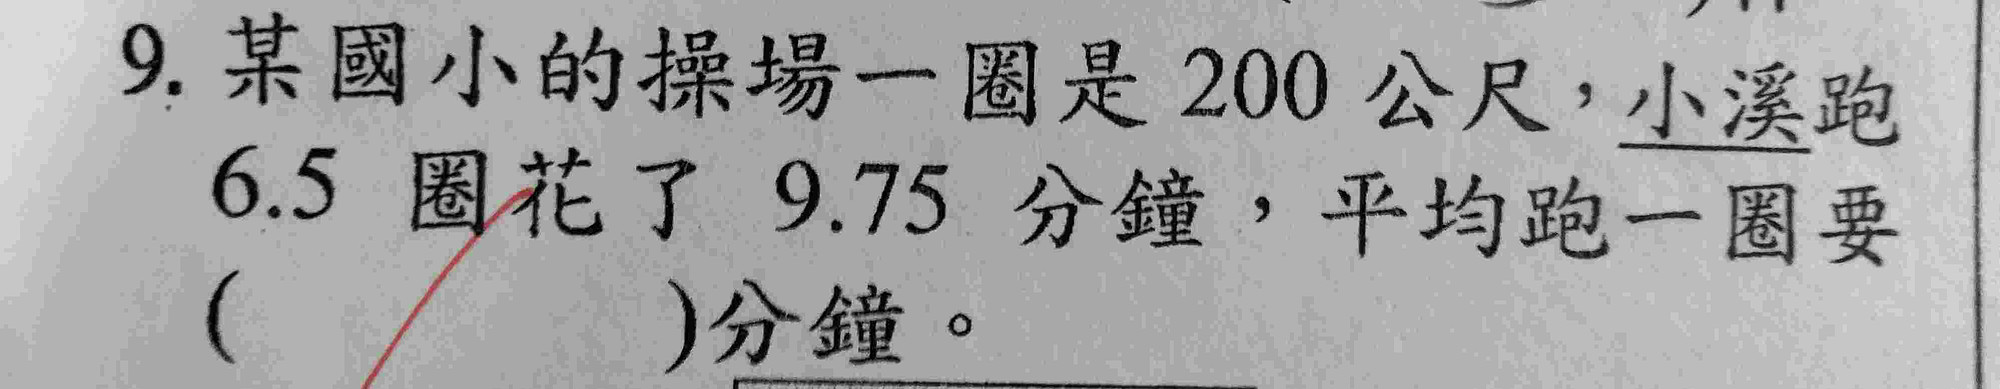 9. 某國小的操場一圈是 200 公尺，小溪跑
6.5 圈花了 9.75 分鐘，平均跑一圈要
(　　　　)分鐘。